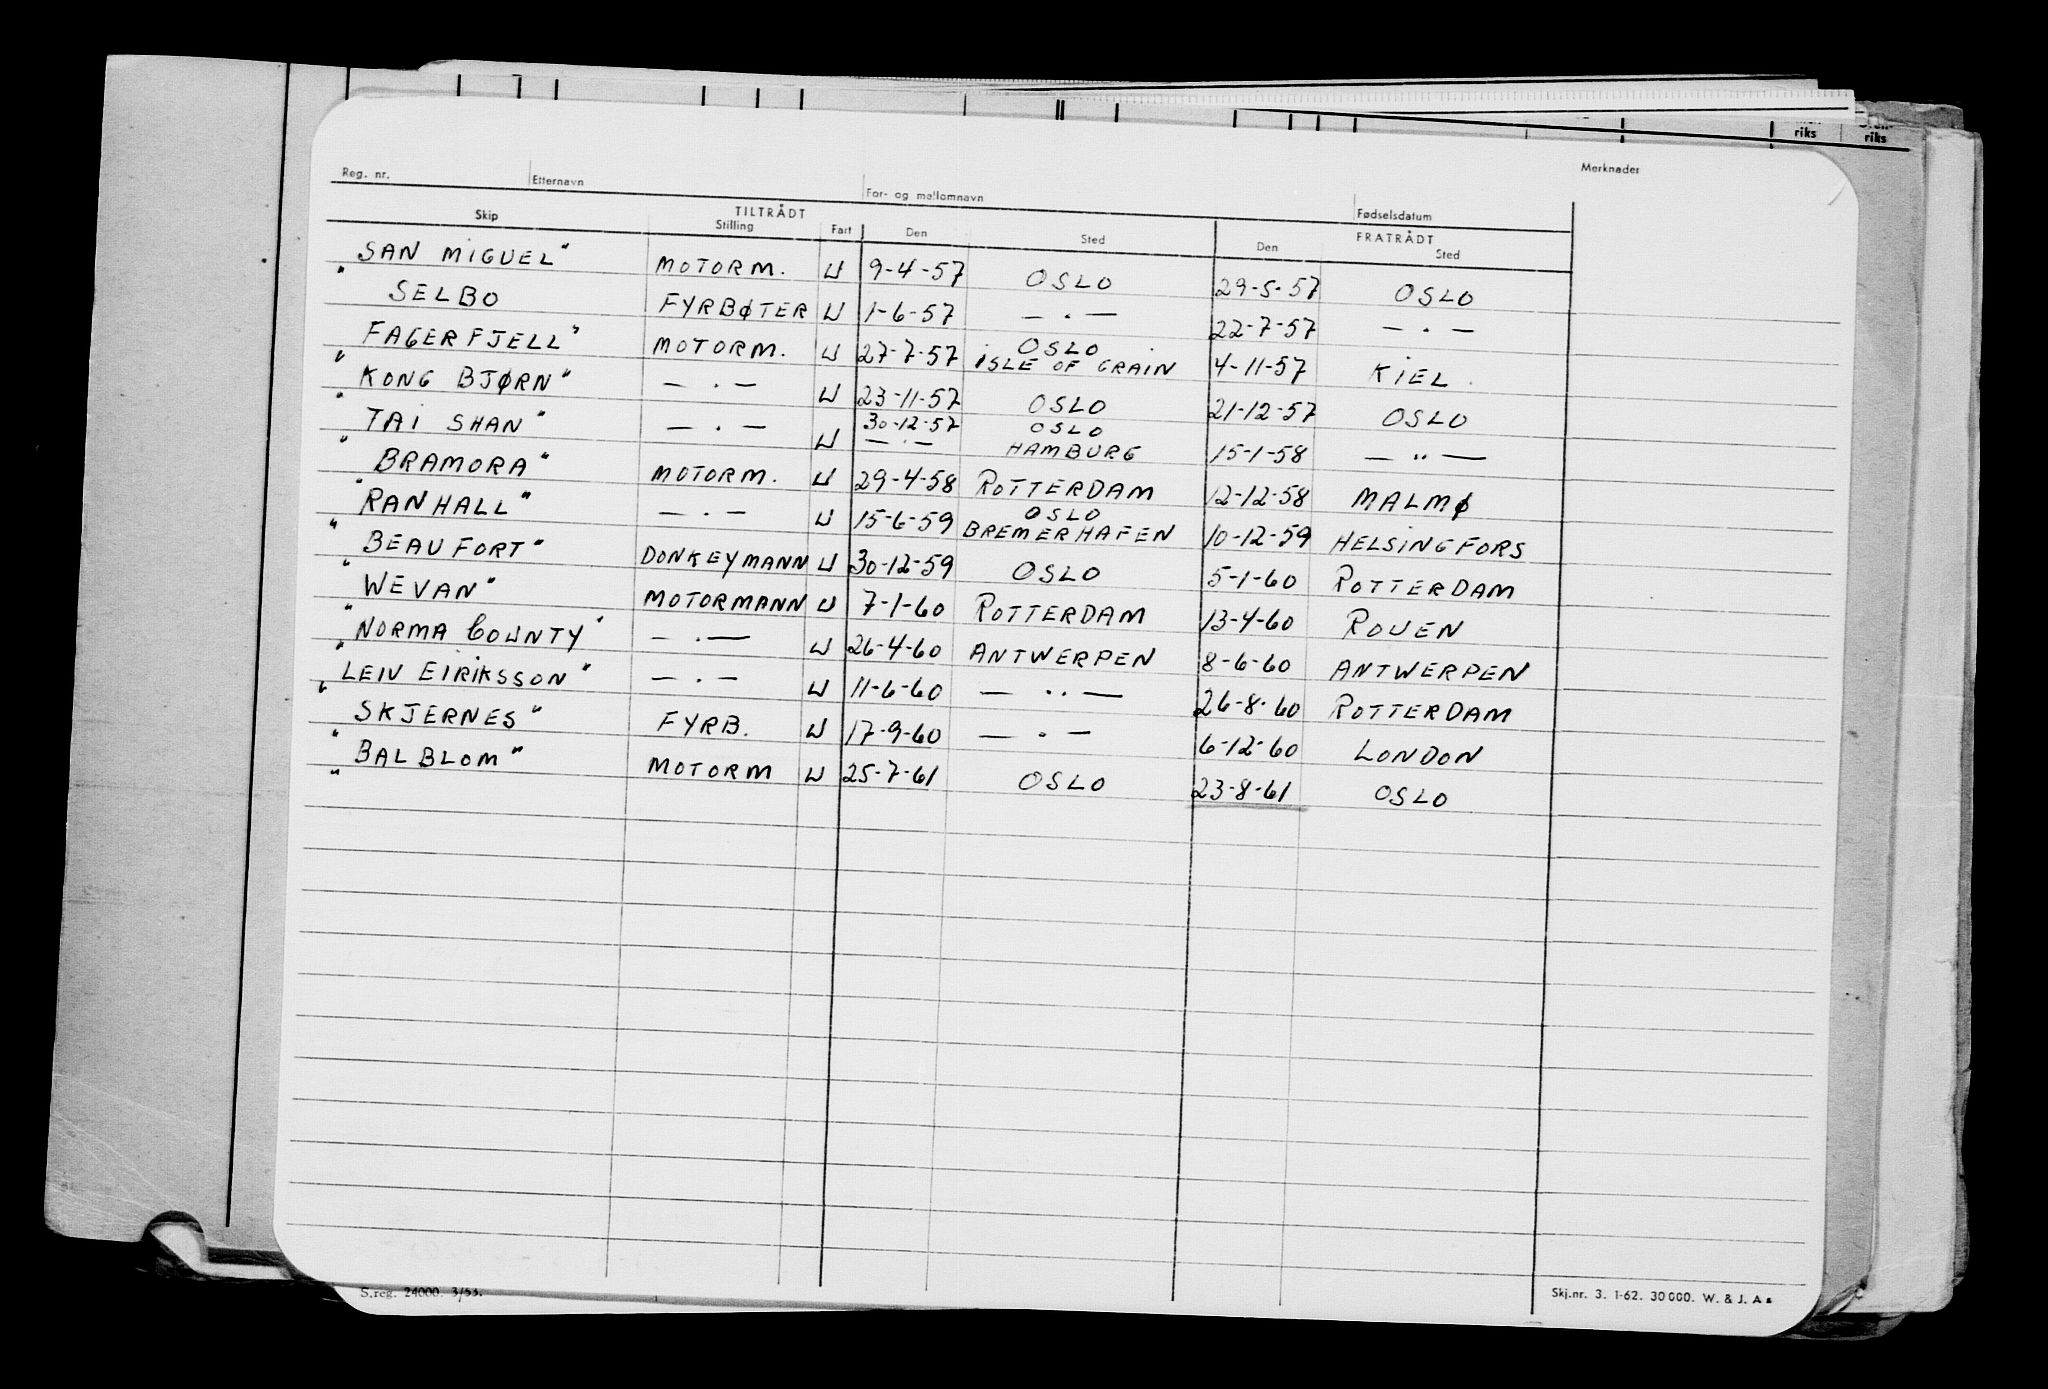 riks riks
Reg. nr. Etternavn For- og mellomnavn Fødselsdatum Merknader
TILTRÅDT FRATRÅDT
Skip Stilling Fart Den Sted Den Sted
SAN MIGUEL" MOTORM. U 9-4-57 OSLO 29-5-57 OSLO
" SELBO FYRBØTER U 1-6-57 — . — 22-7-57 — . —
FAGERFJELL" MOTORM. U 27-7-57 OSLO ISLE OF GRAIN 4-11-57 KIEL
" KONG BJØRN" — . — U 23-11-57 OSLO 21-12-57 OSLO
" TAI SHAN" — . — U 30-12-57 OSLO
— . — HAMBURG 15-1-58 — " —
" BRAMORA" MOTORM. U 29-4-58 ROTTERDAM 12-12-58 MALMØ
" RANHALL" — . — U 15-6-59 OSLO BREMERHAFEN 10-12-59 HELSINGFORS
" BEAUFORT" DONKEYMANN U 30-12-59 OSLO 5-1-60 ROTTERDAM
" WEVAN" MOTORMANN U 7-1-60 ROTTERDAM 13-4-60 ROUEN
" NORMA COUNTY" — . — U 26-4-60 ANTWERPEN 8-6-60 ANTWERPEN
" LEIV EIRIKSSON" — . — U 11-6-60 — .. — 26-8-60 ROTTERDAM
" SKJERNES" FYRB. U 17-9-60 — . — 6-12-60 LONDON
" BALBLOM" MOTORM U 25-7-61 OSLO 23-8-61 OSLO
"
S.reg. 24000. 3/53. Skj.nr. 3. 1-62. 30000. W. & J. As